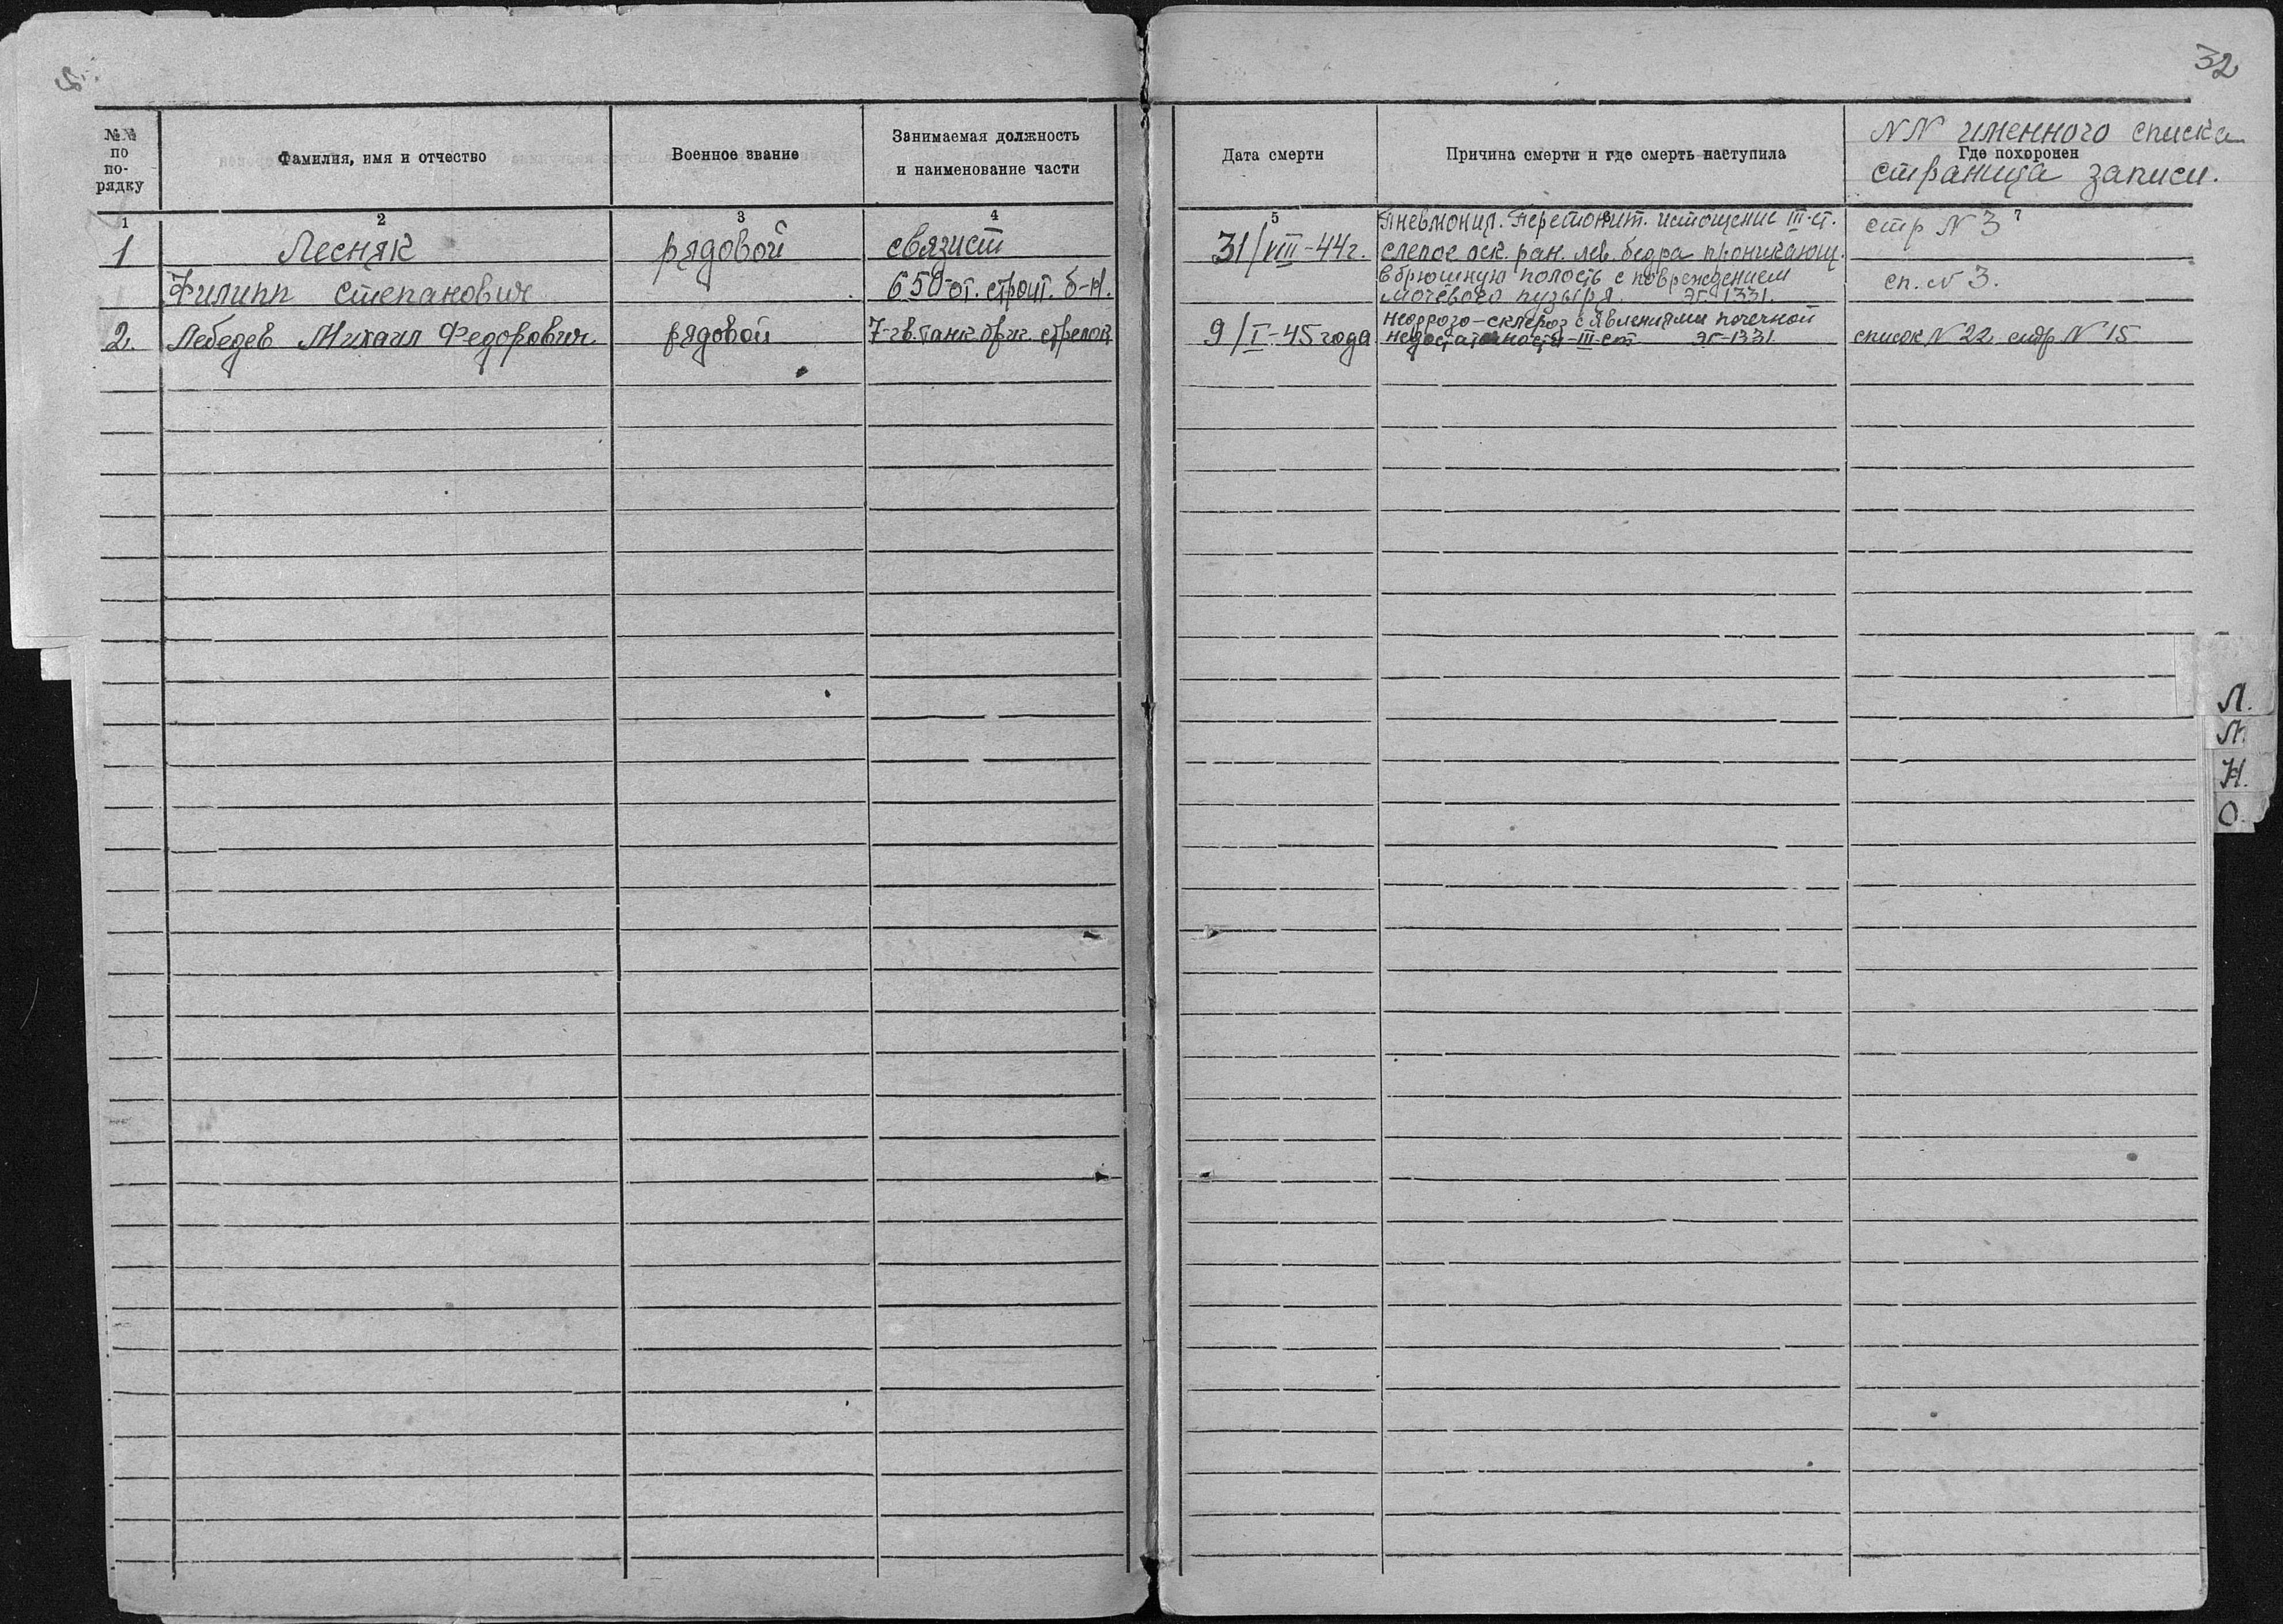 32
№№ по по-рядку
Фамилия, имя и отчество
Военное звание
Занимаемая должность
и наименование части
Дата смерти
Причина смерти и где смерть наступила
NN именного списка
Где похоронен
страница записи.
1 2 3 4 5 6 7
1 Лесняк рядовой связист 31/VIII-44г.
Филипп Степанович 650 от. строит. б-н.
Пневмония. Перетонит. истощение III-ст.
слепое оск. ран. лев. бедра проникающ.
в брюшную полость с повреждением
мочевого пузыря. ЭГ-1331.
стр N 3
сп. N 3.
2. Лебедев Михаил Федорович рядовой 7-гв. танк. бриг. стрелок 9/I-45 года
-склероз с явлениями почечной
недостаточности-III-ст ЭГ-1331
список N 22 стр N 15
Л.
М.
Н.
О.